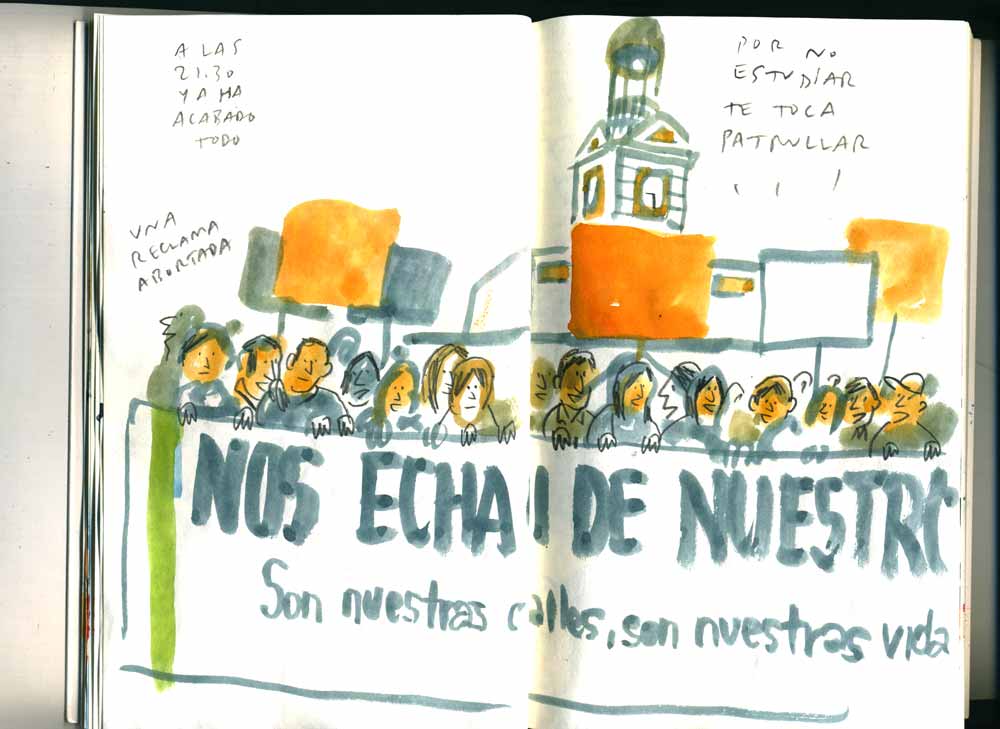 A LAS
21.30
YA HA
ACABADO
TODO
UNA
RECLAMA
ABORTADA
POR NO
ESTUDIAR
TE TOCA
PATRULLAR
NOS ECHAN DE NUESTRO
Son nuestras calles, son nuestras vida